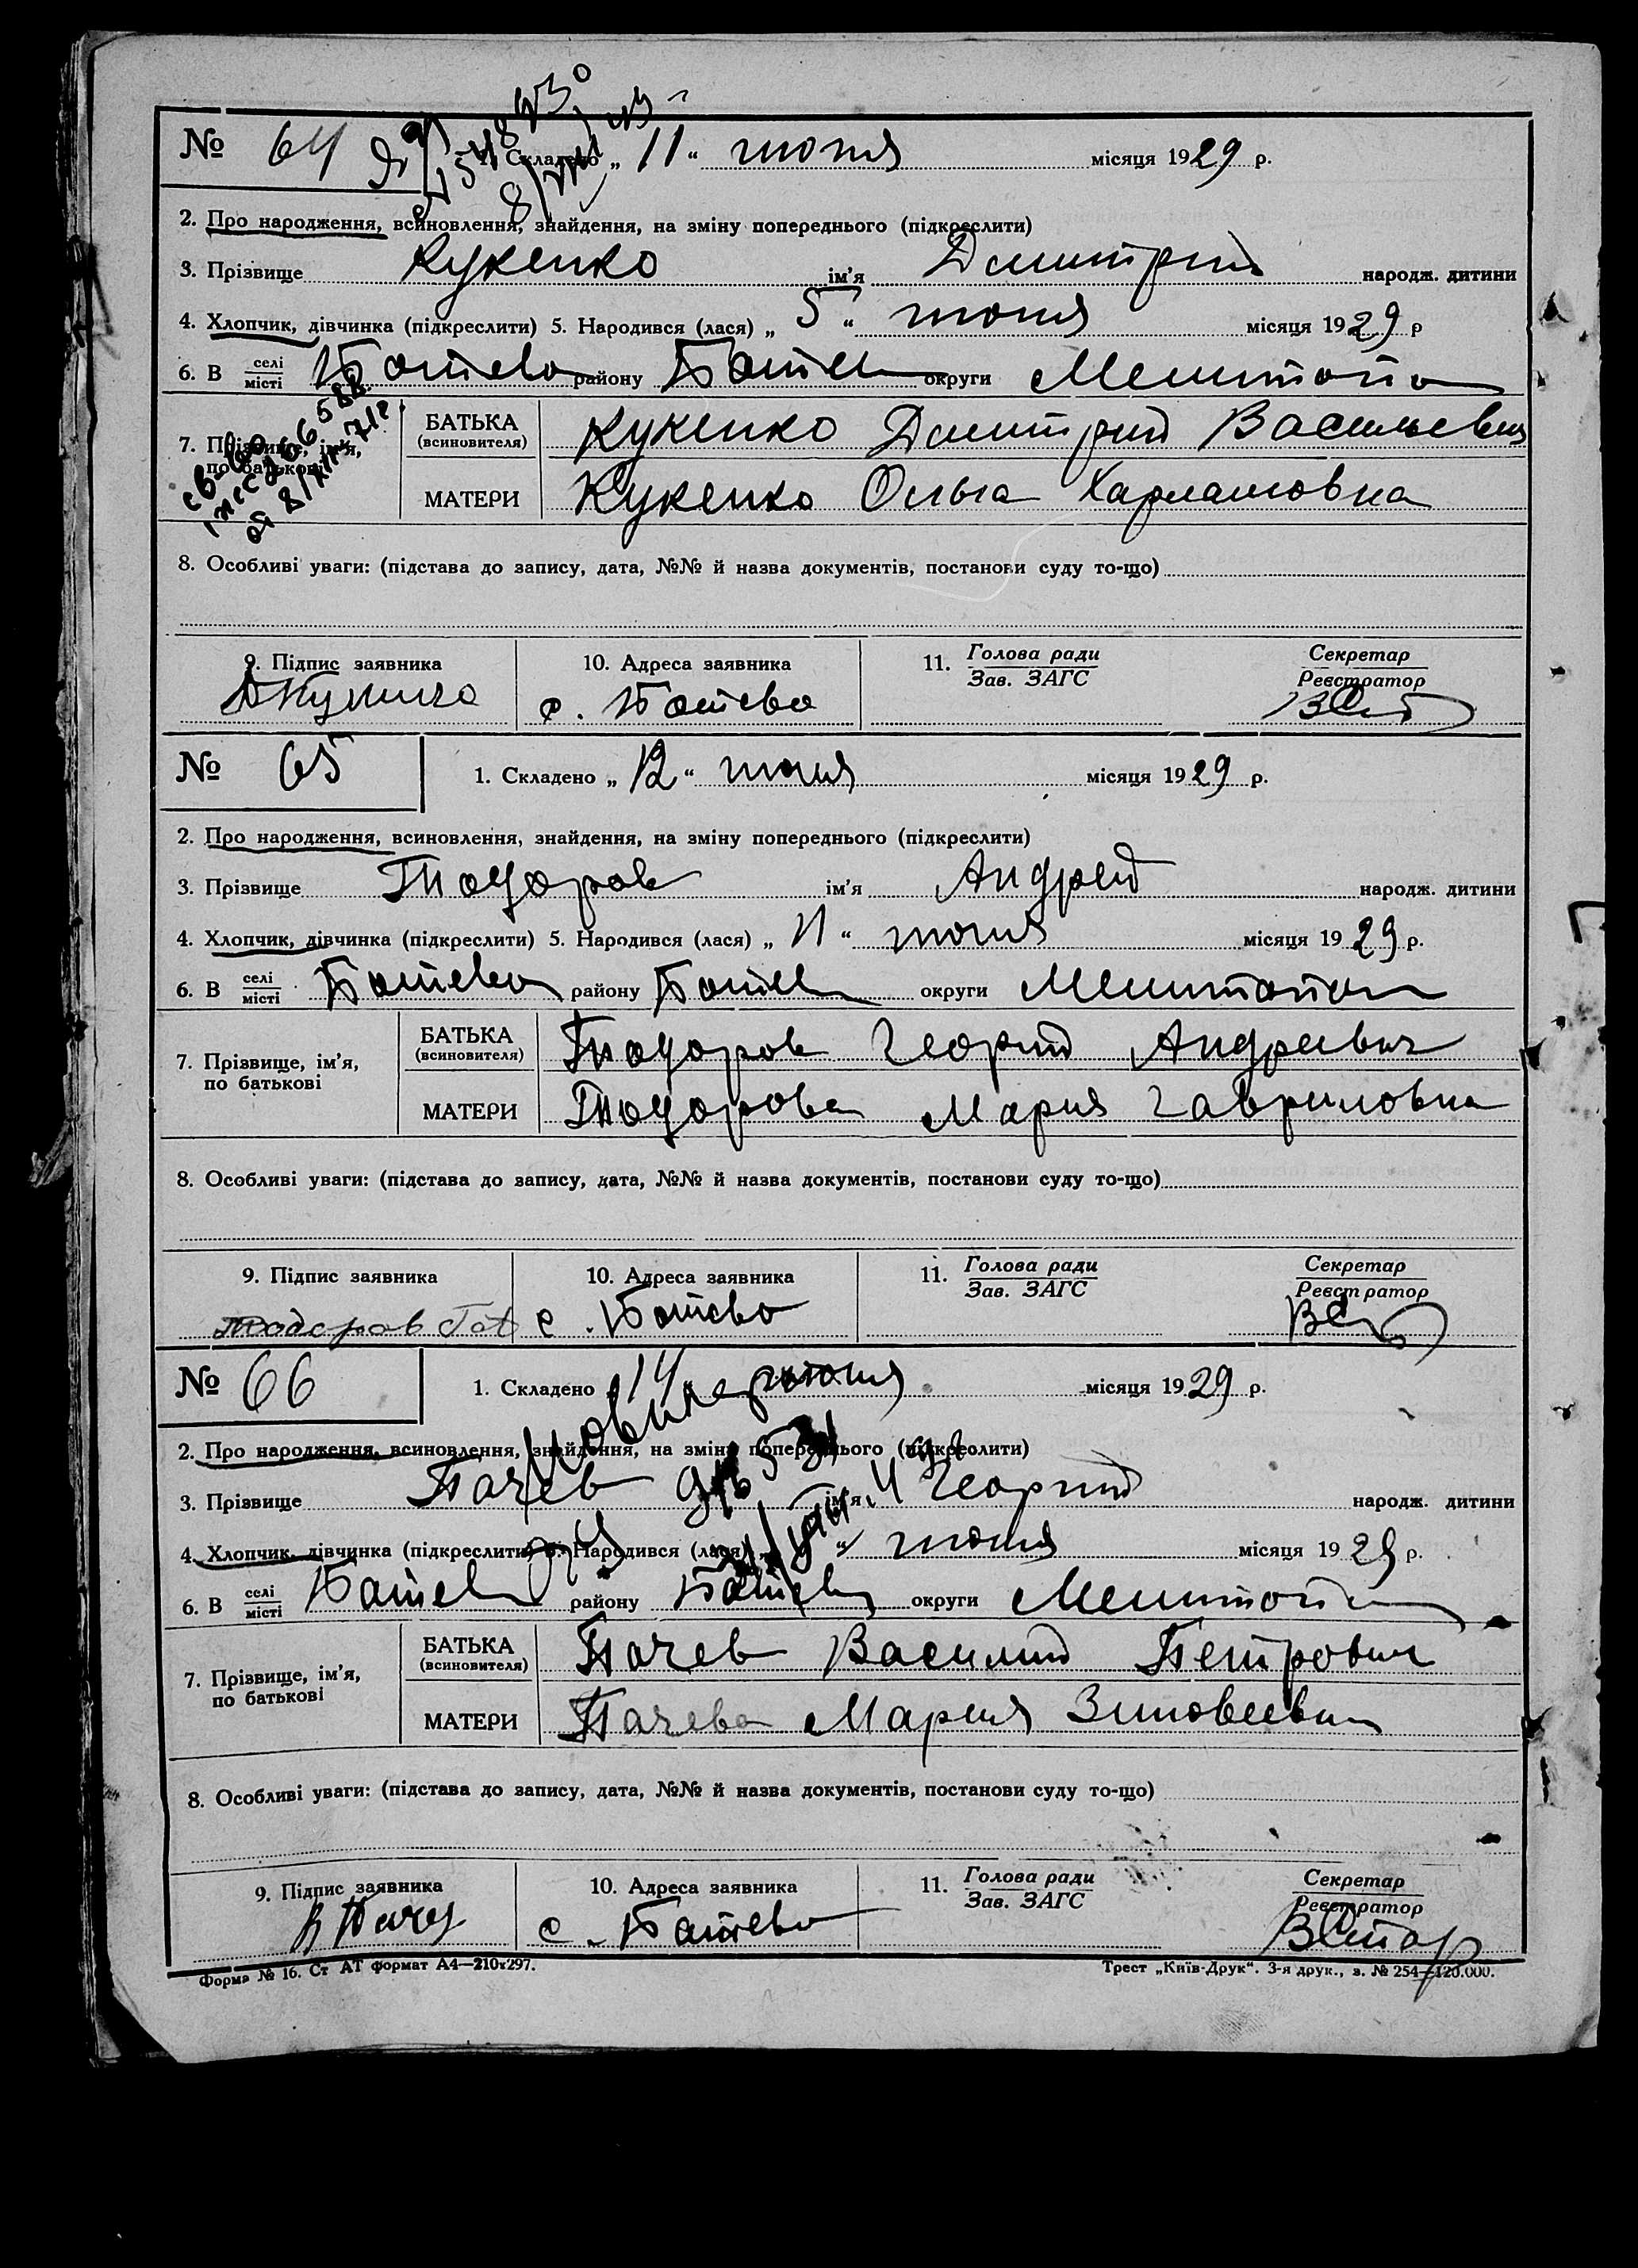 № 64 1. Складено „ 11 “ июня місяця 1929 р.
2. Про народження, всиновлення, знайдення, на зміну попереднього (підкреслити)
3. Прізвище Кукенко ім’я Дмитрий народж. дитини
4. Хлопчик, дівчинка (підкреслити) 5. Народився (лася) „ 5 “ июня місяця 1929 р
6. В селі/місті Ботево району Ботев округи Мелитопол
7. Прізвище, ім’я, по батькові
БАТЬКА (всиновителя) Кукенко Дмитрий Васильевич
МАТЕРИ Кукенко Ольга Харламовна
8. Особливі уваги: (підстава до запису, дата, №№ й назва документів, постанови суду то-що)
9. Підпис заявника 10. Адреса заявника 11. Голова ради/Зав. ЗАГС Секретар/Реєстратор
с. Ботево
№ 65 1. Складено „ 12 “ июня місяця 1929 р.
2. Про народження, всиновлення, знайдення, на зміну попереднього (підкреслити)
3. Прізвище Тодоров ім’я Андрей народж. дитини
4. Хлопчик, дівчинка (підкреслити) 5. Народився (лася) „ 11 “ июня місяця 1929 р.
6. В селі/місті Ботево району Ботев округи Мелитопол
7. Прізвище, ім’я, по батькові
БАТЬКА (всиновителя) Тодоров Георгий Андреевич
МАТЕРИ Тодорова Мария Гавриловна
8. Особливі уваги: (підстава до запису, дата, №№ й назва документів, постанови суду то-що)
9. Підпис заявника 10. Адреса заявника 11. Голова ради/Зав. ЗАГС Секретар/Реєстратор
Тодоров с. Ботево
№ 66 1. Складено 14 июня місяця 1929 р.
2. Про народження, всиновлення, знайдення, на зміну попереднього (підкреслити)
3. Прізвище Пачев ім’я Георгий народж. дитини
4. Хлопчик, дівчинка (підкреслити) 5. Народився (лася) „ “ июня місяця 1929 р.
6. В селі/місті Ботев району Ботев округи Мелитопол
7. Прізвище, ім’я, по батькові
БАТЬКА (всиновителя) Пачев Василий Петрович
МАТЕРИ Пачева Мария Зиновеевна
8. Особливі уваги: (підстава до запису, дата, №№ й назва документів, постанови суду то-що)
9. Підпис заявника 10. Адреса заявника 11. Голова ради/Зав. ЗАГС Секретар/Реєстратор
с. Ботево
Форма № 16. Ст АТ формат А4—210х297. Трест „Київ-Друк“. 3-я друк., з. № 254—120.000.